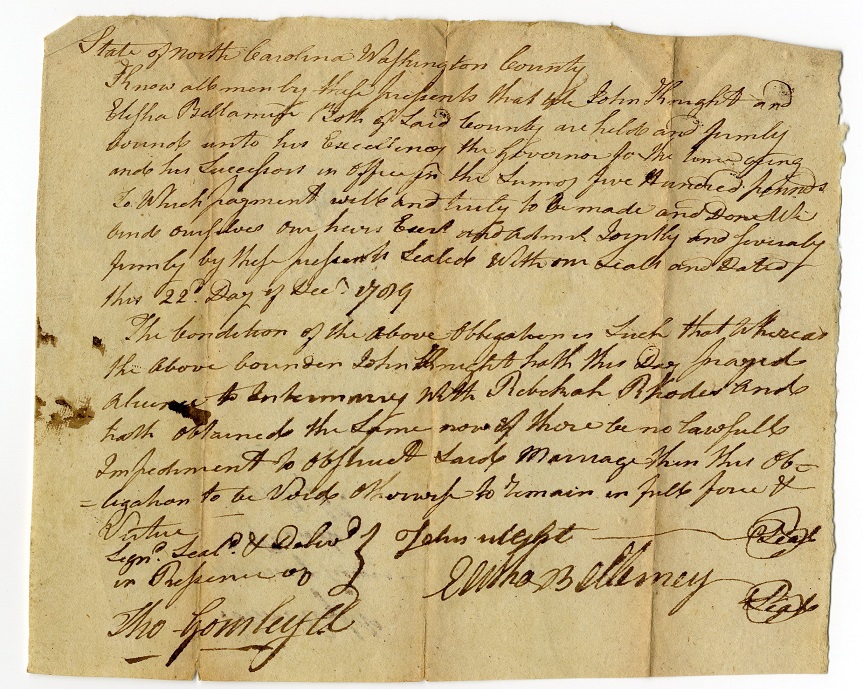 State of North Carolina Washington County
Know all men by these presents that We John Knight and
Elisha Bellamy Both of Said County are held and firmly
bound unto his Excellency the Governor for the time being
and his Successors in Office in the Sum of five Hundred pounds
To Which payment well and truly to be made and Done We
bind ourselves our heirs Exert and Admrs Jointly and Severally
firmly by these presents Sealed With our Seals and Dated
this 22d. Day of Decr. 1789
The Condition of the above Obligation is Such that Whereas
the above bounden John Knight hath this Day prayed
a licence to Intermarry With Rebekah Rhodes And
hath obtained the Same now if there be no lawfull
Impediment to Obstruct Said Marriage then this Ob=
=ligation to be Void otherwise to remain in full force &
Virtue
Signd. Seald. & Delivd
in Presence of
John
Seal
Bellamey
Seal
Tho Gourley